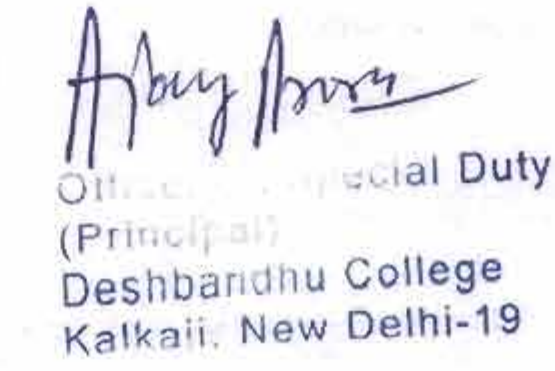 Ajay Arora
Officer on Special Duty
(Principal)
Deshbandhu College
Kalkaji, New Delhi-19